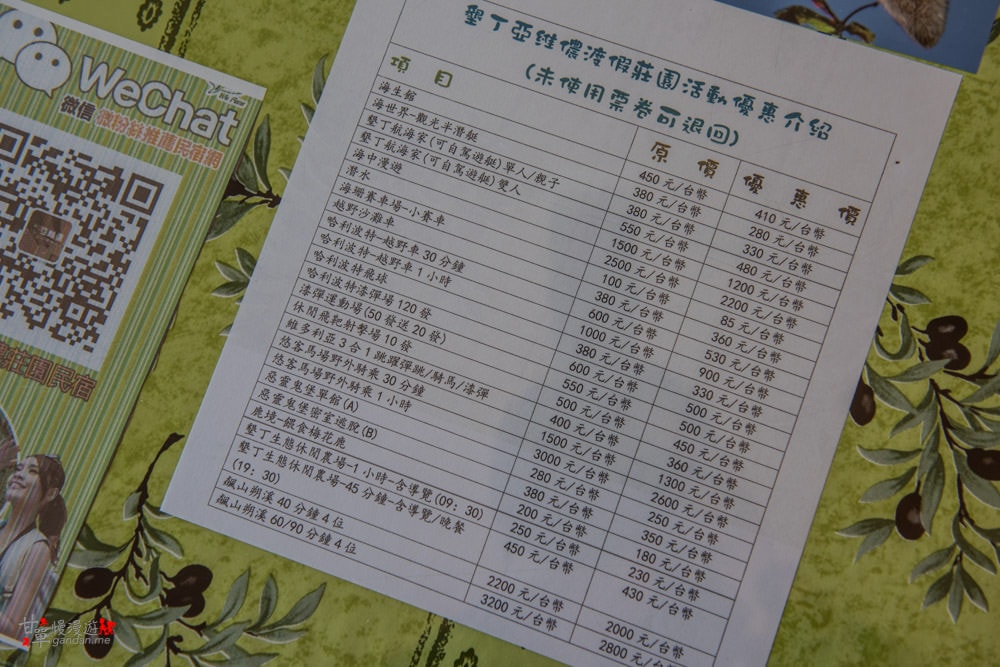 WeChat
微信
墾丁亞維儂渡假莊園活動優惠介紹
(未使用票卷可退回)
項目 原價 優惠價
海生館 450 元/台幣 410 元/台幣
海世界-觀光半潛艇 380 元/台幣 280 元/台幣
墾丁航海家(可自駕遊艇)單人/親子 380 元/台幣 330 元/台幣
墾丁航海家(可自駕遊艇)雙人 550 元/台幣 480 元/台幣
海中漫遊 1500 元/台幣 1200 元/台幣
潛水 2500 元/台幣 2200 元/台幣
海珊賽車場-小賽車 100 元/台幣 85 元/台幣
越野沙灘車 380 元/台幣 360 元/台幣
哈利波特-越野車 30 分鐘 600 元/台幣 530 元/台幣
哈利波特-越野車 1 小時 1000 元/台幣 900 元/台幣
哈利波特飛球 380 元/台幣 330 元/台幣
哈利波特漆彈場 120 發 600 元/台幣 500 元/台幣
漆彈運動場(50 發送 20 發) 550 元/台幣 500 元/台幣
休閒飛靶射擊場 10 發 500 元/台幣 450 元/台幣
維多利亞 3 合 1 跳躍彈跳/騎馬/漆彈 400 元/台幣 360 元/台幣
悠客馬場野外騎乘 30 分鐘 1500 元/台幣 1300 元/台幣
悠客馬場野外騎乘 1 小時 3000 元/台幣 2600 元/台幣
惡靈鬼堡單館(A) 280 元/台幣 250 元/台幣
惡靈鬼堡密室逃脫(B) 380 元/台幣 350 元/台幣
鹿境-餵食梅花鹿 200 元/台幣 180 元/台幣
墾丁生態休閒農場-1 小時-含導覽(09:30) 250 元/台幣 230 元/台幣
墾丁生態休閒農場-45 分鐘-含導覽/晚餐 450 元/台幣 430 元/台幣
(19:30)
飆山朔溪 40 分鐘 4 位 2200 元/台幣 2000 元/台幣
飆山朔溪 60/90 分鐘 4 位 3200 元/台幣 2800 元/台幣
莊園民宿
甘單慢漫遊
gandan.me